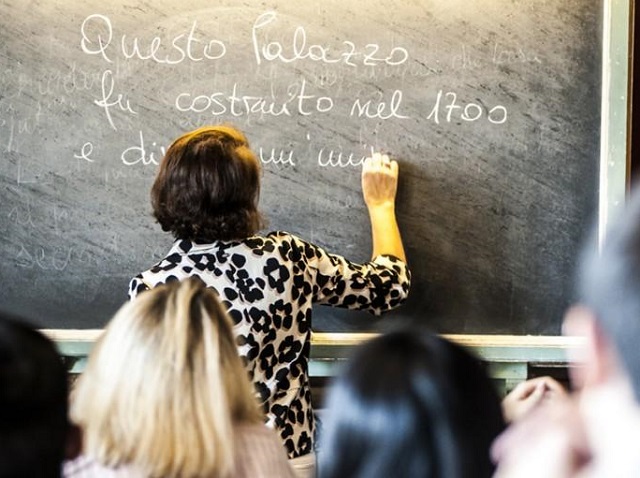 Questo Palazzo
fu costruito nel 1700
e un'